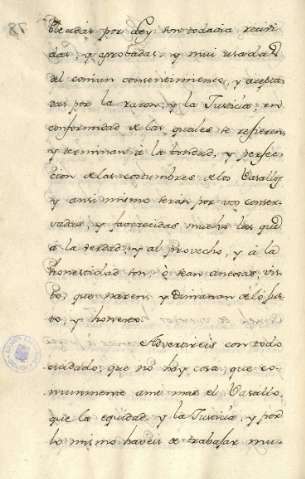 cladas por Ley son todavia recivi
das, y aprobadas, y mui usadas
del comun consentimiento, y acepta
das por la razon, y la Justicia: en
conformidad de las quales se refieren,
y terminan á la bondad, y perfec
cion de las costumbres de los Vasallos
y ansi mismo seran por vos conser
vadas, y favorecidas mucho las que
á la verdad, y al provecho, y á la
honestidad son, ó sean anexas, vis
to, que nacen, y dimanan de lo jus
to, y honesto.
Advertireis con todo
cuidado, que no hay cosa, que co
munmente ame mas el Vasallo,
que la equidad, y la Justicia, y por
lo mismo haveis de trabajar mu